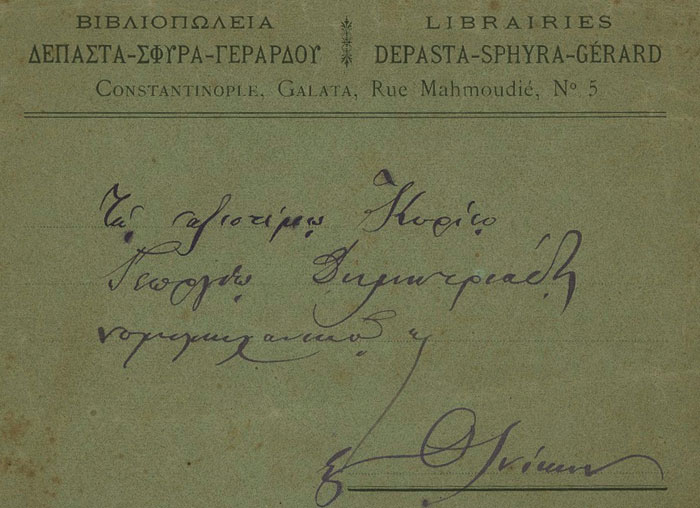 ΒΙΒΛΙΟΠΩΛΕΙΑ
ΔΕΠΑΣΤΑ-ΣΦΥΡΑ-ΓΕΡΑΡΔΟΥ
LIBRAIRIES
DEPASTA-SPHYRA-GÉRARD
CONSTANTINOPLE, GALATA, Rue Mahmoudié, Nº 5
Τῷ ἀξιοτίμῳ Κυρίῳ
Γεωργίῳ Δημητριάδῃ